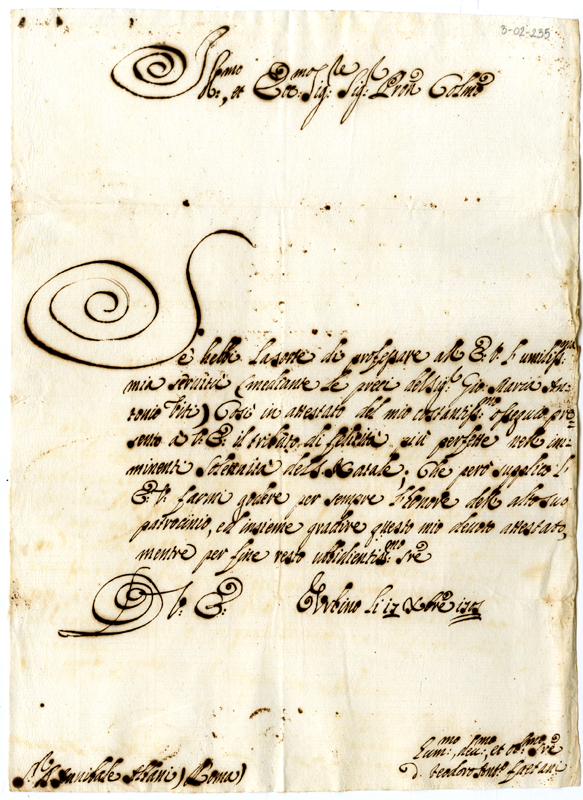 3-02-235
Ill.mo et Ecc.mo Sig.r Sig.r Pron Colmo
Se hebbi la sorte di professare all' E. V. l'umiliss.
mia servitù (mediante le preci del Sig.r Gio Maria An-
tonio Viti) Così in attestato del mio costantiss.mo ossequio pre
sento a V. E. il tributo di felicità più perfette nelle im-
minenti Solennità del S. Natale, Che però supplico l'
E. V. farmi godere per sempre l'honore dell' alto suo
patrocinio, ed insieme gradire questo mio devoto attestato,
mentre per fine resto ubbidientis.mo sre
D. V. E. Urbino li 17 Xbre
Sr D Annibale Albani (Roma)
Hum.mo, dev.mo, et obb.mo Sre
D. Teodoro Ant.o